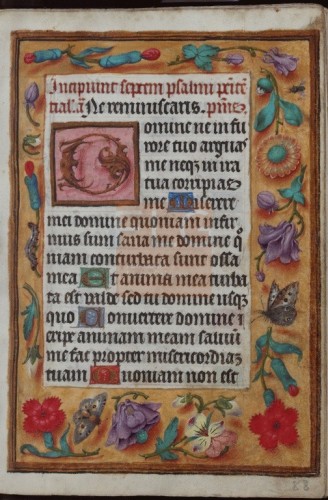 Incipiunt septem psalmi penite
tial. añ Ne reminiscaris. psm9
Domine ne in fu
rore tuo arguas
me neq3 in ira
tua corripias
me Miserere
mei domine quoniam infir
mus sum sana me domine q̊
niam conturbata sunt ossa
mea Et anima mea turba
ta est valde sed tu domine usq3
quo Convertere domine i
eripe animam meam saluū
me fac propter misericordiaz
tuam Quoniam non est
88